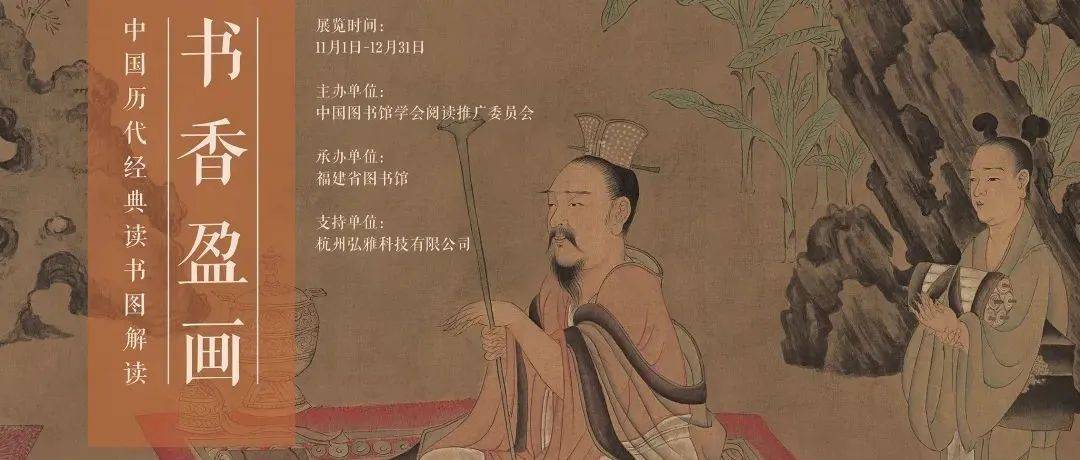 书香盈画
中国历代经典读书图解读
展览时间：
11月1日-12月31日
主办单位：
中国图书馆学会阅读推广委员会
承办单位：
福建省图书馆
支持单位：
杭州弘雅科技有限公司